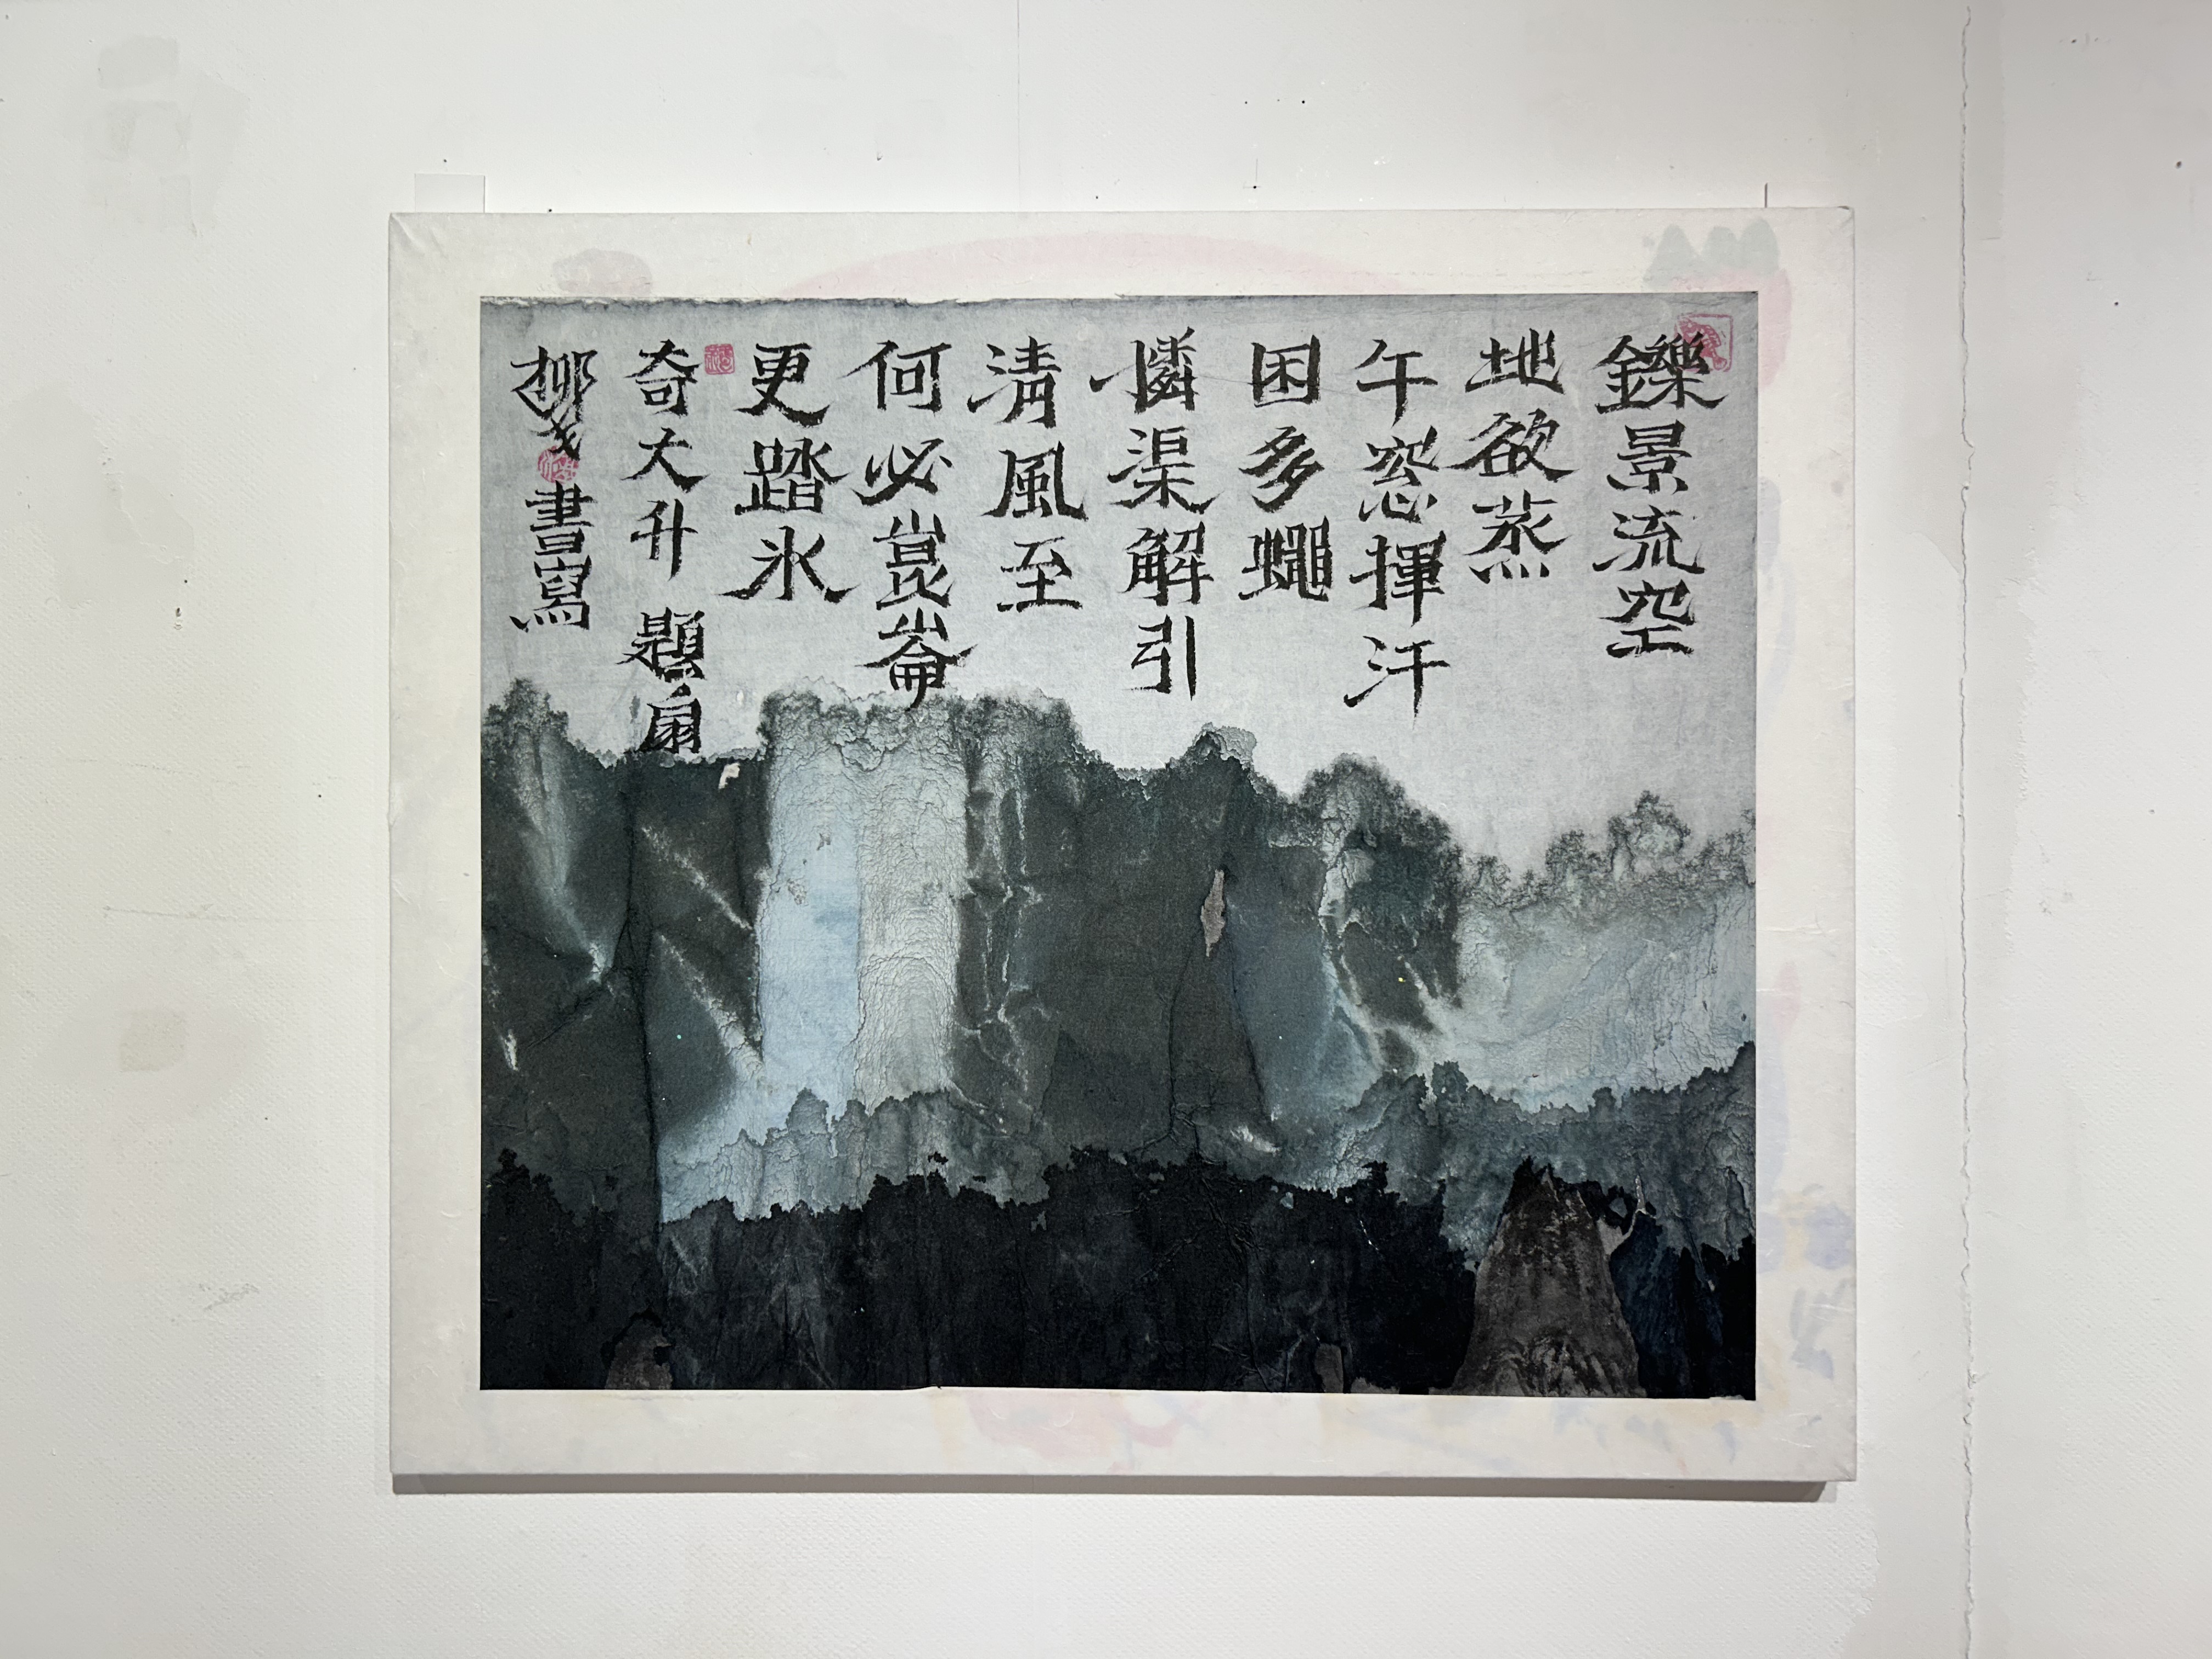 鑠景流空
地欲蒸
午窓揮汗
困多蠅
憐渠解引
清風至
何必崑崙
更踏氷
奇大升 題扇
書寫